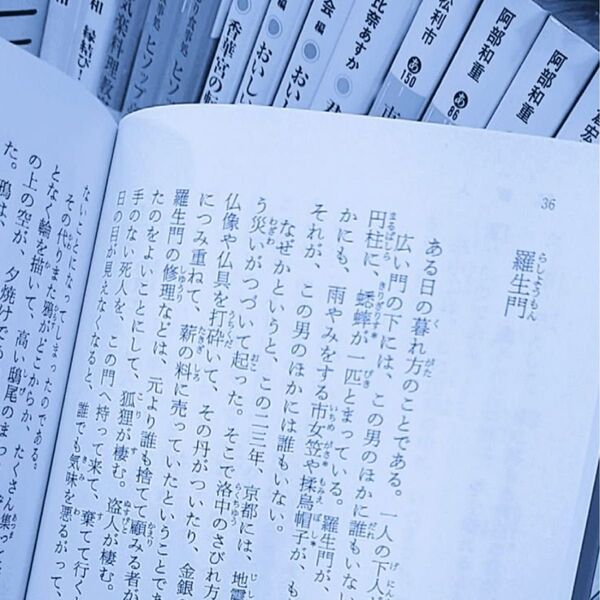 和 縁結び!
ヒソップ
香華宮の転
おいし
会 編
比奈あすか
松利市
あ
150
阿部和重
あ
86
阿部和重
36
羅生門
ある日の暮れ方のことである。一人の下人
広い門の下には、この男のほかに誰もいない
円柱に、蟋蟀が一匹とまっている。羅生門が、
かにも、雨やみをする市女笠や揉烏帽子が、も
それが、この男のほかには誰もいない。
なぜかというと、この二三年、京都には、地震
う災いがつづいて起った。そこで洛中のさびれ方
仏像や仏具を打砕いて、その丹がついたり、金銀
につみ重ねて、薪の料に売っていたということであ
羅生門の修理などは、元より誰も捨てて顧みる者が
たのをよいことにして、狐狸が棲む。盗人が棲む。
手のない死人を、この門へ持って来て、棄てて行く
日の目が見えなくなると、誰でも気味を悪るがって、
ないことになってしまったのである。
その代りまた鴉がどこからか、たくさん集っ
となく輪を描いて、高い鴟尾のまわ
の上の空が、夕焼けで
た。鴉は、